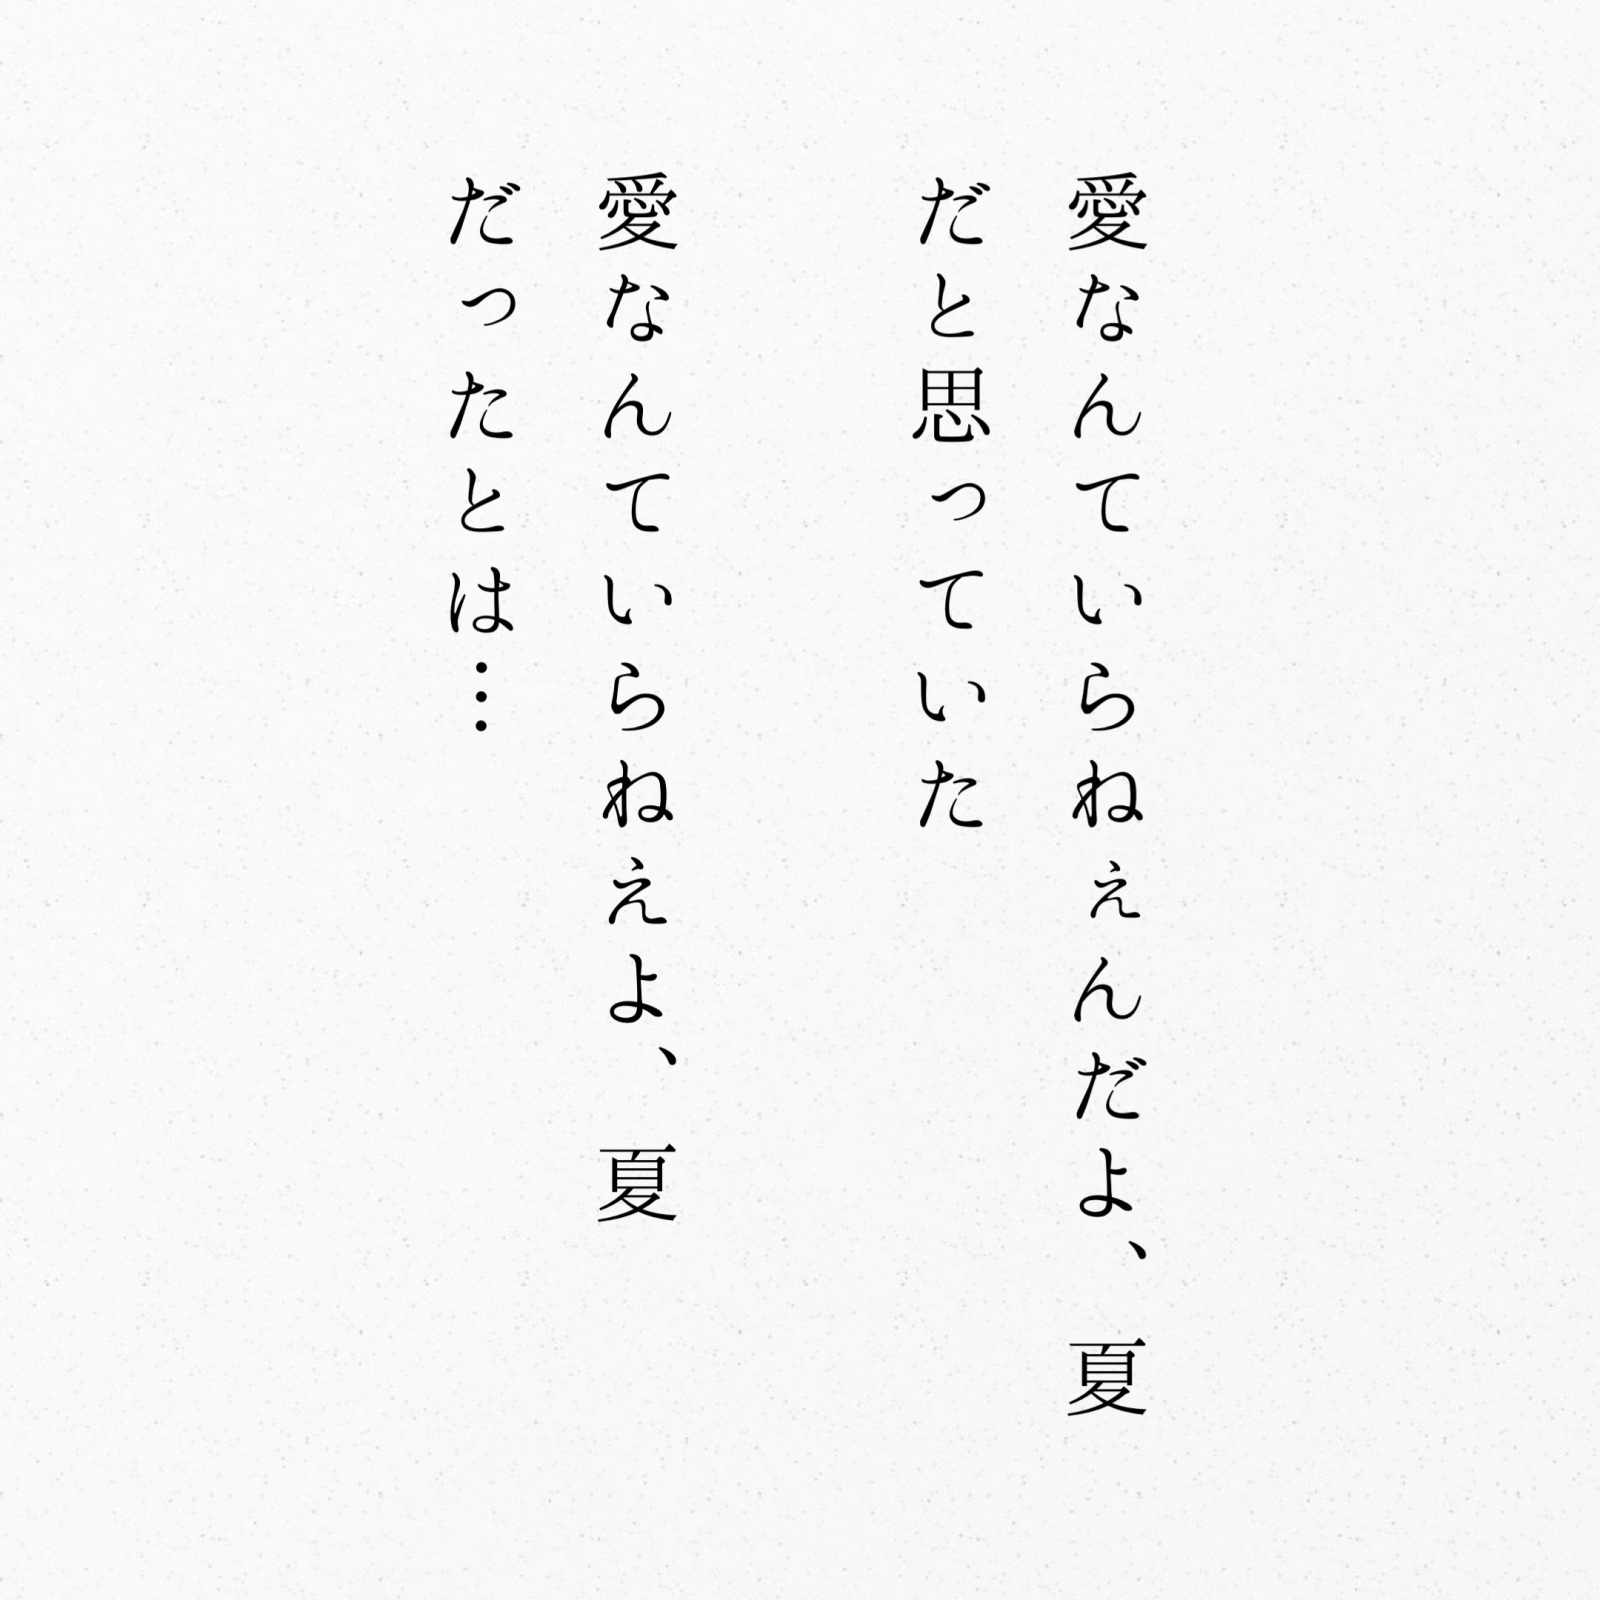 愛なんていらねぇんだよ、夏
だと思っていた
愛なんていらねえよ、夏
だったとは…